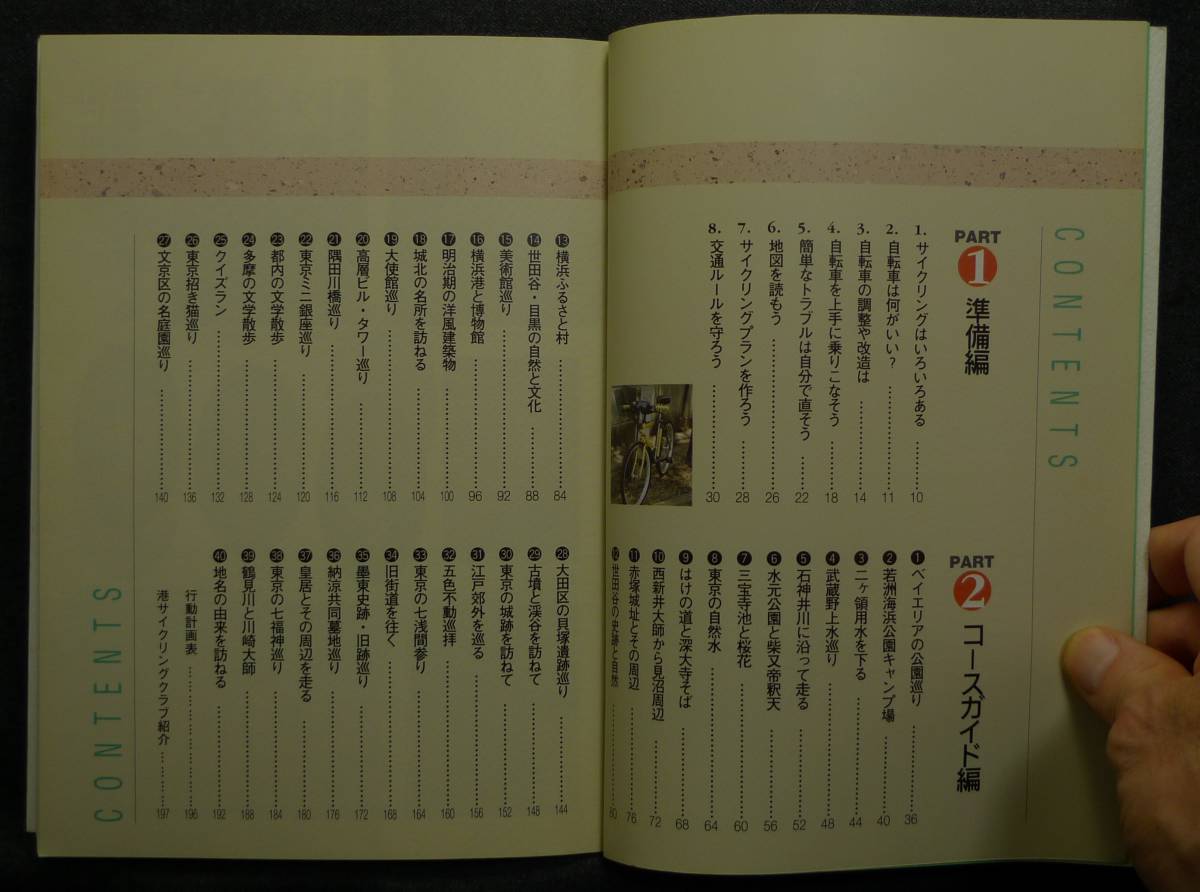 CONTENTS
PART
1
準備編
1. サイクリングはいろいろある………10
2. 自転車は何がいい?………11
3. 自転車の調整や改造は………14
4. 自転車を上手に乗りこなそう………18
5. 簡単なトラブルは自分で直そう………22
6. 地図を読もう………26
7. サイクリングプランを作ろう………28
8. 交通ルールを守ろう………30
PART
2
コースガイド編
❶ベイエリアの公園巡り………36
❷若洲海浜公園キャンプ場………40
❸二ヶ領用水を下る………44
❹武蔵野上水巡り………48
❺石神井川に沿って走る………52
❻水元公園と柴又帝釈天………56
❼三宝寺池と桜花………60
❽東京の自然水………64
❾はけの道と深大寺そば………68
❿西新井大師から見沼周辺………72
⓫赤塚城址とその周辺………76
⓬世田谷の史跡と自然………80
⓭横浜ふるさと村………84
⓮世田谷・目黒の自然と文化………88
⓯美術館巡り………92
⓰横浜港と博物館………96
⓱明治期の洋風建築物………100
⓲城北の名所を訪ねる………104
⓳大使館巡り………108
⓴高層ビル・タワー巡り………112
㉑隅田川橋巡り………116
㉒東京ミニ銀座巡り………120
㉓都内の文学散歩………124
㉔多摩の文学散歩………128
㉕クイズラン………132
㉖東京招き猫巡り………136
㉗文京区の名庭園巡り………140
㉘大田区の貝塚遺跡巡り………144
㉙古墳と渓谷を訪ねて………148
㉚東京の城跡を訪ねて………152
㉛江戸郊外を巡る………156
㉜五色不動巡拝………160
㉝東京の七浅間参り………164
㉞旧街道を往く………168
㉟墨東史跡・旧跡巡り………172
㊱納涼共同墓地巡り………176
㊲皇居とその周辺を走る………180
㊳東京の七福神巡り………184
㊴鶴見川と川崎大師………188
㊵地名の由来を訪ねる………192
行動計画表………196
港サイクリングクラブ紹介………197
CONTENTS